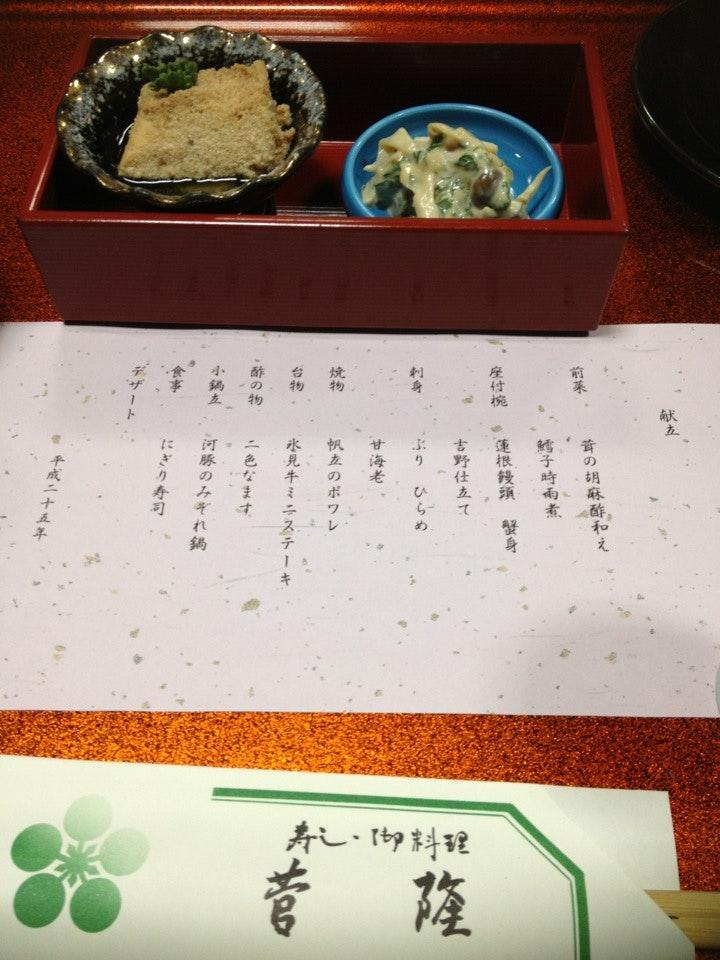 献立
前菜　茸の胡麻酢和え
鱈子時雨煮
座付椀　蓮根饅頭　蟹身
吉野仕立て
刺身　ぶり　ひらめ
甘海老
焼物　帆立のポワレ
台物　氷見牛ミニステーキ
酢の物　二色なます
小鍋立　河豚のみぞれ鍋
食事　にぎり寿司
デザート
平成二十五年
寿し・御料理
菅隆